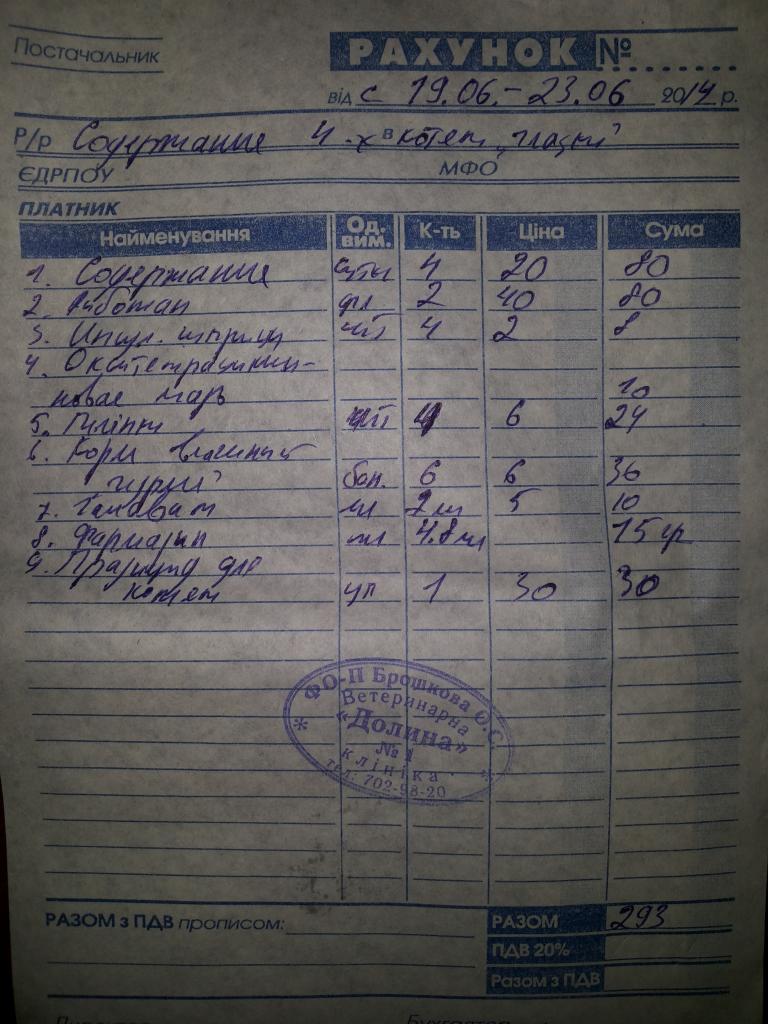 Постачальник
РАХУНОК №
від с 19.06.-23.06 2014 р.
Р/р Содержание 4-х котят
ЄДРПОУ МФО
ПЛАТНИК
Найменування Од. вим. К-ть Ціна Сума
1. Содержание сутки 4 20 80
2. фл 2 40 80
3. Инсул. шприцы шт 4 2 8
4. Окситетрациклин-
новая мазь 10
5. шт 4 6 24
6. Корм влажный
бан. 6 6 36
7. Гамавит мл 2 мл 5 10
8. мл 4.8 мл 15 гр
9. Празицид для
котят уп 1 30 30
ФО-П Брошкова О.С.
Ветеринарна
«Долина»
№ 1
клініка
тел: 702-98-20
РАЗОМ з ПДВ прописом: РАЗОМ 293
ПДВ 20%
Разом з ПДВ